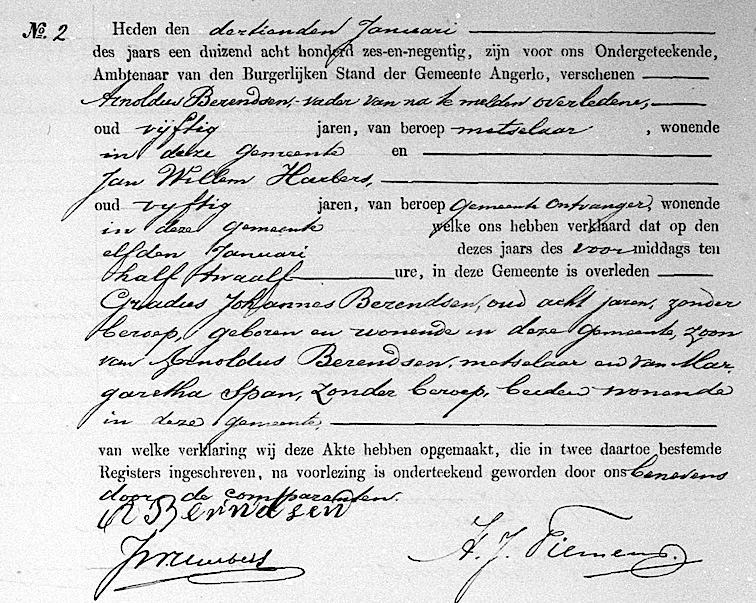 No. 2 Heden den dertienden Januari
des jaars een duizend acht honderd zes-en-negentig, zijn voor ons Ondergeteekende,
Ambtenaar van den Burgerlijken Stand der Gemeente Angerlo, verschenen
Arnoldus Berendsen, vader van na te melden overledene,
oud vijftig jaren, van beroep metselaar, wonende
in deze gemeente en
Jan Willem Harbers,
oud vijftig jaren, van beroep Gemeente Ontvanger, wonende
in deze gemeente welke ons hebben verklaard dat op den
elfden Januari dezes jaars des voormiddags ten
half twaalf ure, in deze Gemeente is overleden
Gradus Johannes Berendsen, oud acht jaren, zonder
beroep, geboren en wonende in deze gemeente, zoon
van Arnoldus Berendsen, metselaar en van Mar-
garetha Span, zonder beroep, beiden wonende
in deze gemeente,
van welke verklaring wij deze Akte hebben opgemaakt, die in twee daartoe bestemde
Registers ingeschreven, na voorlezing is onderteekend geworden door ons benevens
door de comparanten.
A Berendsen
JWHarbers A. J. Tiemens